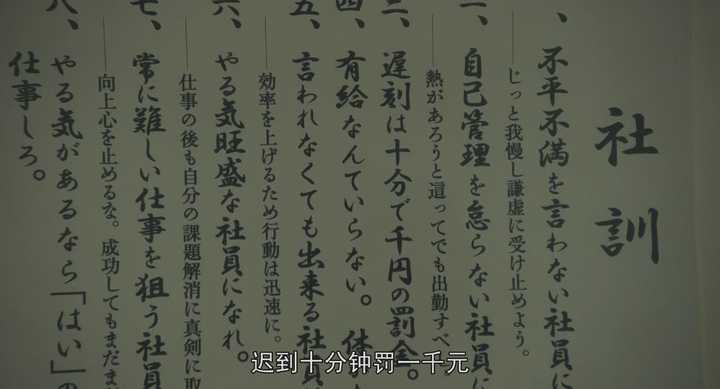 社訓
、不平不満を言わない社員に
じっと我慢し謙虚に受け止めよう。
二、自己管理を怠らない社員に
熱があろうと這ってでも出勤すべ
三、遅刻は十分で千円の罰金。
四、有給なんていらない。休
五、言われなくても出来る社員
効率を上げるため行動は迅速に。
六、やる気旺盛な社員になれ。
仕事の後も自分の課題解消に真剣に取
七、常に難しい仕事を狙う社員
向上心を止めるな。成功してもまだま
八、やる気があるなら「はい」の
仕事しろ。
迟到十分钟罚一千元